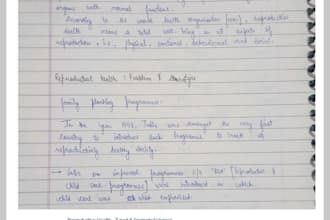 organs with normal functions.
According to the world health organisation [WHO], reproductive
health means a total well-being in all aspects of
reproduction, i.e., physical, emotional, behavioural and social.
Reproductive health: Problem & Strategies
family planning programmes:
In the year 1951, India was amongst the very first
country to introduce such programme to
reproductively healthy society.
→ Later on improved programmes c/a "RCH" [Reproductive &
child care programmes] were introduced in which
child care was also improved.